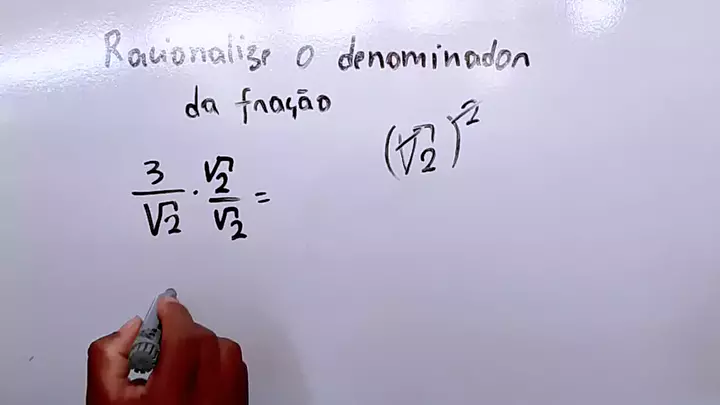 Racionalize o denominador
da fração
3/√2 · √2/√2 =
(√2)²